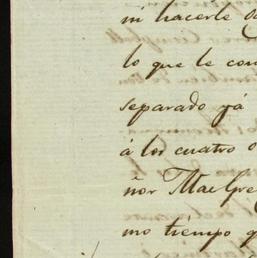 ni hacerle da
lo que le con
separado ya
á los cuatro d
ñor MacGre
mo tiempo q